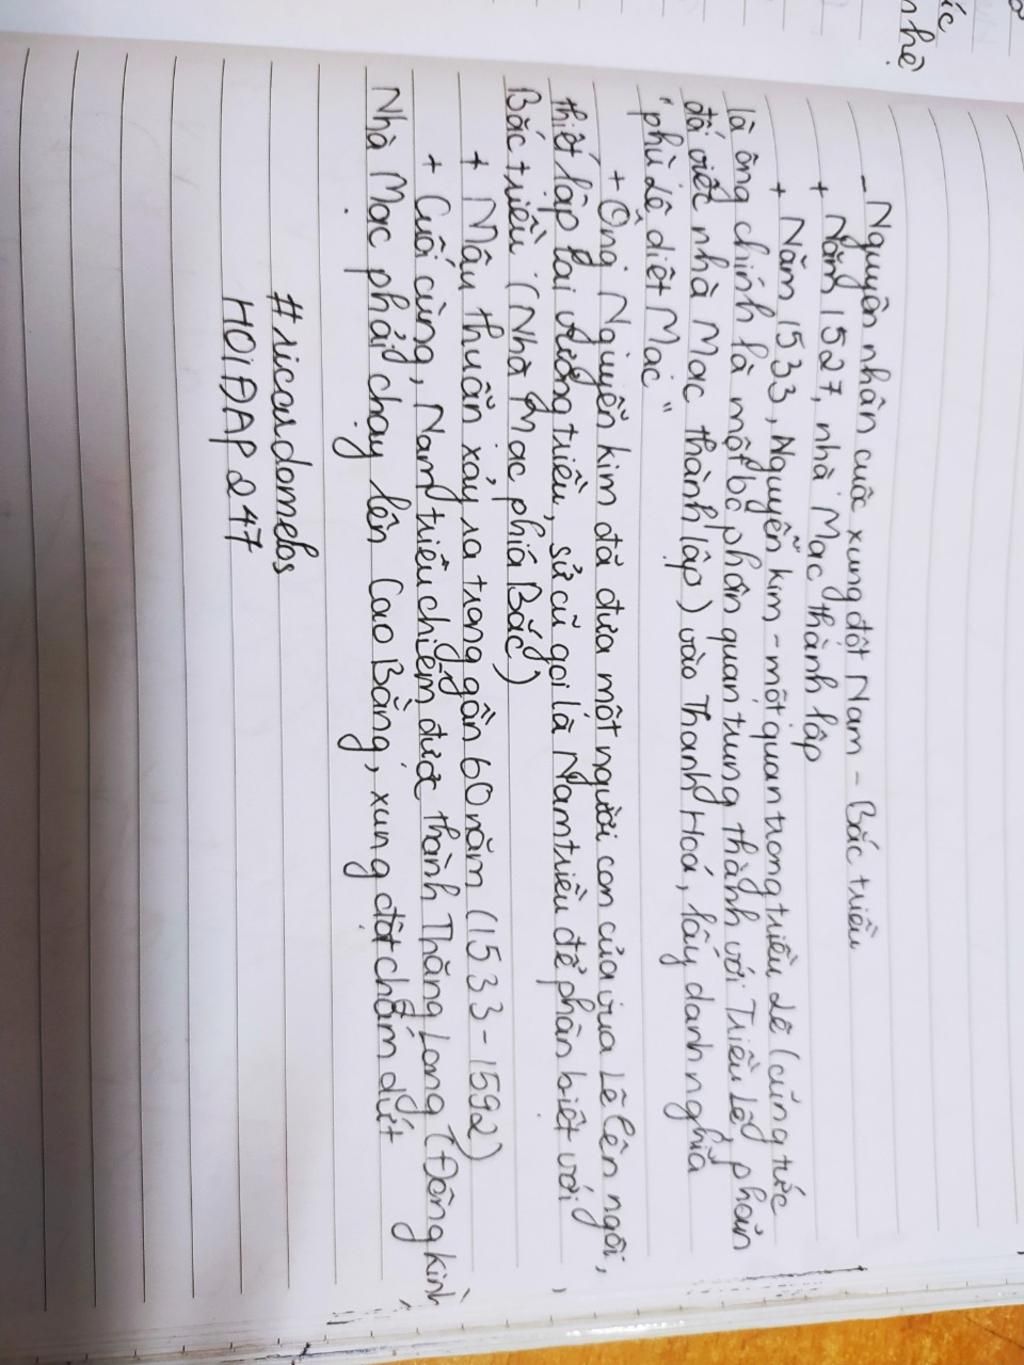 ốc
nhè
- Nguyên nhân cuộc xung đột Nam - Bắc triều
+ Năm 1527, nhà Mạc thành lập
+ Năm 1533, Nguyễn Kim - một quan trong triều Lê (cũng tức
là ông chính là một bộ phận quan trung thành với Triều Lê, phản
đối việt nhà Mạc thành lập) vào Thanh Hoá, lấy danh nghĩa
"phù Lê diệt Mạc"
+ Ông Nguyễn Kim đã đưa một người con của vua Lê lên ngôi,
thiết lập lại vương triều, sử cũ gọi là Nam triều để phân biệt với
Bắc triều (Nhà Mạc phía Bắc)
+ Mâu thuẫn xảy ra trong gần 60 năm (1533-1592)
+ Cuối cùng, Nam triều chiếm được thành Thăng Long (Đông Kinh),
Nhà Mạc phải chạy lên Cao Bằng, xung đột chấm dứt
#ricardomelos
HOIĐAP247